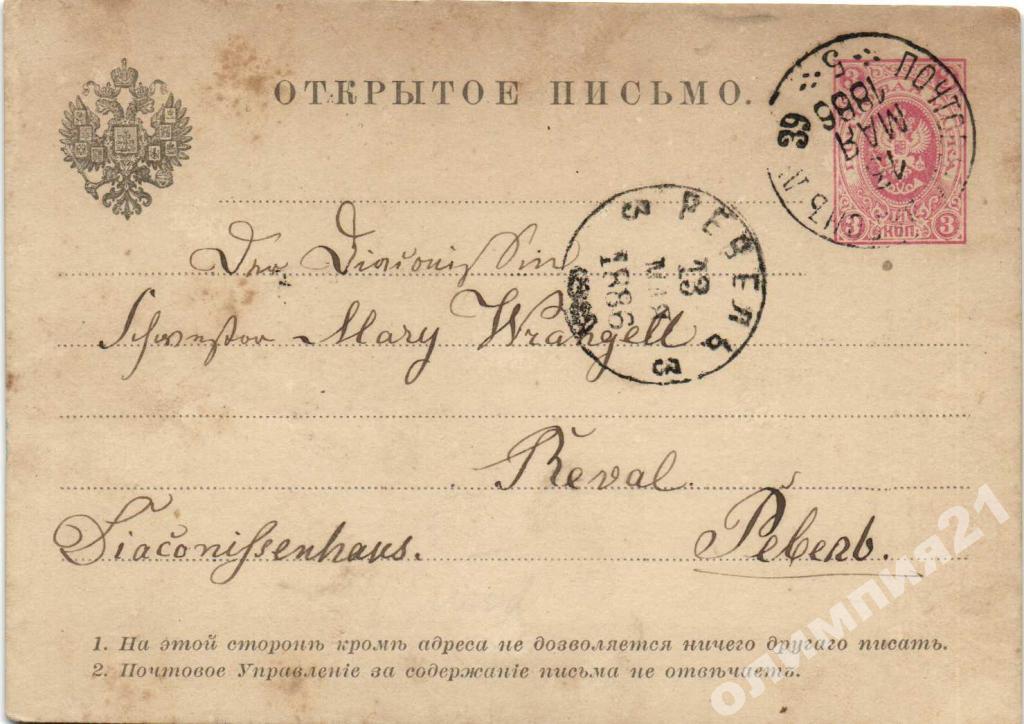 ОТКРЫТОЕ ПИСЬМО.
5 ПОЧТОВ
39
МАЯ
1886
3 КОП. 3
РЕВЕЛЬ
3 3
13
МАЯ
1886
Der Diaconissin
Schwester Mary Wrangell
Reval.
Diaconissenhaus.
Ревель.
1. На этой сторонѣ кромѣ адреса не дозволяется ничего другаго писать.
2. Почтовое Управленіе за содержаніе письма не отвѣчаетъ.
олимпия21